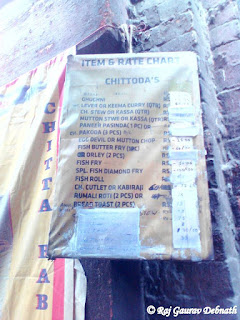 ITEM & RATE CHART
CHITTODA'S
GHUGNI
LEVER OR KEEMA CURRY (QTR)
CH. STEW OR KASSA (QTR)
MUTTON STWE OR KASSA (QTR)
PANEER PASINDA(1 PC) OR
PAKODA (3 PCS)
EGG DEVIL OR MUTTON CHOP
FISH BUTTER FRY (1PC)
OR ORLEY (2 PCS)
FISH FRY
SPL. FISH DIAMOND FRY
FISH ROLL
CH. CUTLET OR KABIRAJI
RUMALI ROTI(2 PCS) OR
BREAD TOAST (2 PCS)
CHITTA BAB
© Raj Gaurav Debnath